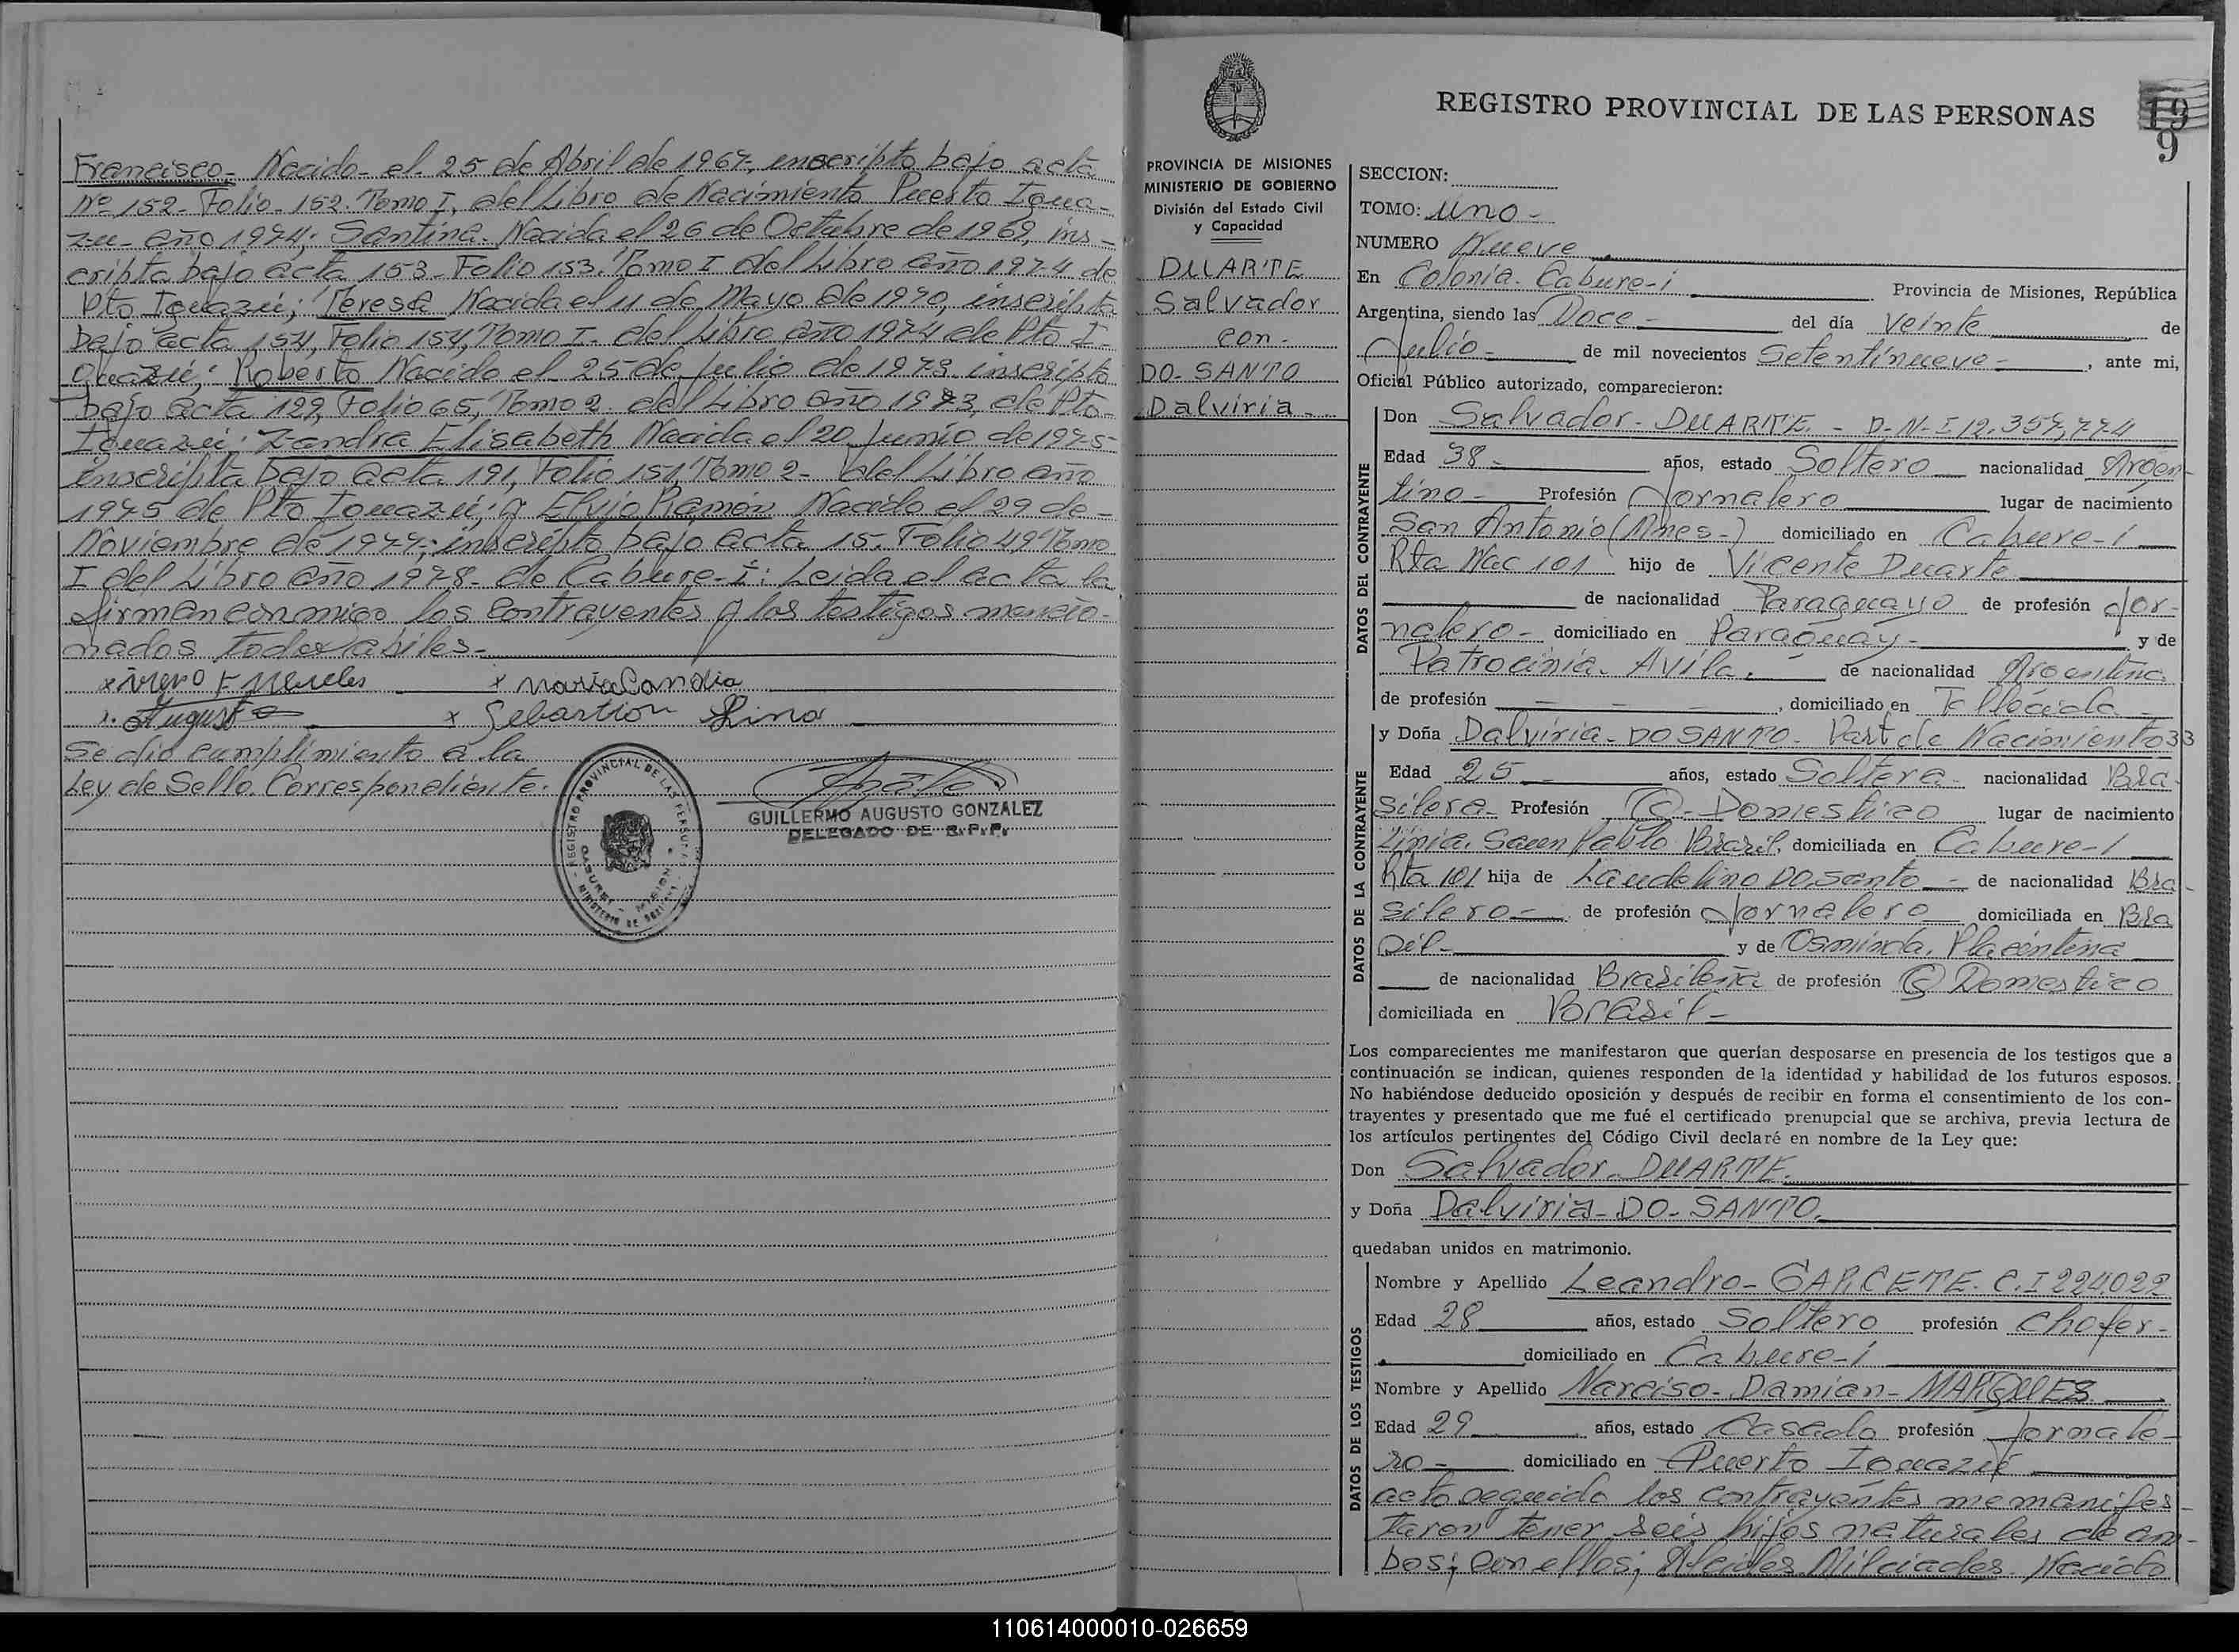 Francisco- Nacido- el- 25 de Abril de 1967-, inscripto bajo acta
Nº-152- Folio- 152. Tomo I, del Libro de Nacimiento Puerto Igua-
zu- año 1974; Santina- Nacida el 26 de Octubre de 1969, ins-
cripta bajo acta 153- Folio 153. Tomo I del Libro año 1974 de
Pto Iguazú; Teresa Nacida el 11 de Mayo de 1970, inscripta
bajo acta 154, Folio 154, Tomo I- del Libro año 1974 de Pto I-
guazú; Roberto Nacido el 25 de Julio de 1973 inscripto
bajo acta 129, Folio 65, Tomo 2 del Libro año 1973, de Pto-
Iguazú; Zandra Elisabeth Nacida el 20 Junio de 1975-
inscripta bajo acta 191, Folio 151, Tomo 2- del Libro año
1975 de Pto Iguazú; y Elvio Ramón Nacido el 29 de-
Noviembre de 1977-; inscripto bajo acta 15. Folio 49 Tomo
I del Libro año 1978- de Cabure-I: Leida el acta la
firman conmigo los contrayentes y los testigos mencio-
nados todos abiles-
x Maria Candia
x Sebastion Lino
Se dió cumplimiento a la
Ley de Sello Correspondiente.
REGISTRO PROVINCIAL DE LAS PERSONAS
GUILLERMO AUGUSTO GONZALEZ
DELEGADO DE R.P.P.
REGISTRO PROVINCIAL DE LAS PERSONAS
19
9
PROVINCIA DE MISIONES
MINISTERIO DE GOBIERNO
División del Estado Civil
y Capacidad
DUARTE
Salvador
con-
DO- SANTO
Dalviria-
SECCION:
TOMO: uno-
NUMERO Nueve
En Colonia- Cabure-i Provincia de Misiones, República
Argentina, siendo las Doce- del día Veinte de
Julio- de mil novecientos Setentinueve-, ante mi,
Oficial Público autorizado, comparecieron:
DATOS DEL CONTRAYENTE
Don Salvador- DUARTE.- D-N-I 12.357,774
Edad 38- años, estado Soltero nacionalidad Argen-
tino- Profesión Jornalero lugar de nacimiento
San Antonio (Mnes-) domiciliado en Cabure-i
Rta Nac 101 hijo de Vicente Duarte
de nacionalidad Paraguayo de profesión Jor-
nalero- domiciliado en Paraguay- y de
Patrocinia- Avila.- de nacionalidad Argentina
de profesión - - -, domiciliado en Fallecida
DATOS DE LA CONTRAYENTE
y Doña Dalviria- DO SANTO- Part de Nacimiento 33
Edad 25 - años, estado Soltera- nacionalidad Bra-
silera- Profesión Q- Domestico lugar de nacimiento
Pablo Brazil, domiciliada en Cabure-i
Rta 101 hija de Laudelino DO Santo - de nacionalidad Bra-
silero- de profesión Jornalero domiciliada en Bra
sil- y de Osminda. Placentena
de nacionalidad Brasileña de profesión Q Domestico
domiciliada en Brasil-
Los comparecientes me manifestaron que querían desposarse en presencia de los testigos que a
continuación se indican, quienes responden de la identidad y habilidad de los futuros esposos.
No habiéndose deducido oposición y después de recibir en forma el consentimiento de los con-
trayentes y presentado que me fué el certificado prenupcial que se archiva, previa lectura de
los artículos pertinentes del Código Civil declaré en nombre de la Ley que:
Don Salvador- DUARTE.
y Doña Dalviria- DO- SANTO.
quedaban unidos en matrimonio.
DATOS DE LOS TESTIGOS
Nombre y Apellido Leandro- GARCETE- C.I 224.022
Edad 28 años, estado Soltero profesión Chofer-
domiciliado en Cabure-i
Nombre y Apellido Narciso- Damian- MARQUES
Edad 29 años, estado Casado profesión Jornale-
ro- domiciliado en Puerto Iguazú
acto seguido los contrayentes me manifes-
taron tener seis hijos naturales de am-
bos; Milciades- Nacido
110614000010-026659